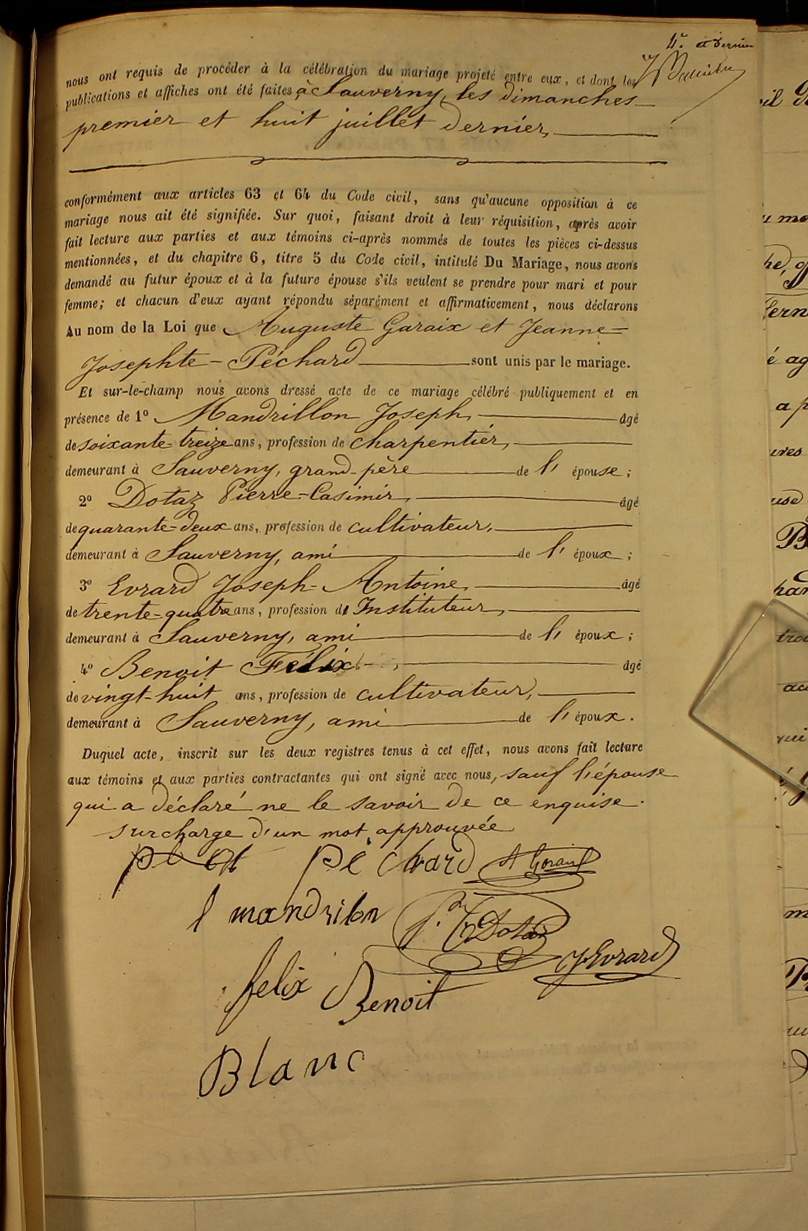 11e et dernier
nous ont requis de procéder à la célébration du mariage projeté entre eux, et dont les
publications et affiches ont été faites à Sauverny, les dimanches
premier et huit juillet dernier,
conformément aux articles 63 et 64 du Code civil, sans qu'aucune opposition à ce
mariage nous ait été signifiée. Sur quoi, faisant droit à leur réquisition, après avoir
fait lecture aux parties et aux témoins ci-après nommés de toutes les pièces ci-dessus
mentionnées, et du chapitre 6, titre 5 du Code civil, intitulé Du Mariage, nous avons
demandé au futur époux et à la future épouse s'ils veulent se prendre pour mari et pour
femme; et chacun d'eux ayant répondu séparément et affirmativement, nous déclarons
Au nom de la Loi que Auguste Garaix et Jeanne=
Josephte-Péchard sont unis par le mariage.
Et sur-le-champ nous avons dressé acte de ce mariage célébré publiquement et en
présence de 1º Mandrillon Joseph, âgé
de soixante treize ans, profession de charpentier,
demeurant à Sauverny, grand-père de l' épouse;
2º Dotaz Pierre-Casimir, âgé
de quarante-deux ans, profession de cultivateur,
demeurant à Sauverny, ami de l' époux;
3º Evrard Joseph-Antoine, âgé
de trente-quatre ans, profession de Instituteur,
demeurant à Sauverny, ami de l' époux;
4º Benoit Félix, âgé
de vingt-huit ans, profession de cultivateur,
demeurant à Sauverny, ami de l' époux.
Duquel acte, inscrit sur les deux registres tenus à cet effet, nous avons fait lecture
aux témoins et aux parties contractantes qui ont signé avec nous, sauf l'épouse
qui a déclaré ne le savoir de ce enquise.
surcharge d'un mot approuvée
Péchard
l mandrilon
Dotaz
J. Evrard
felix Benoit
Blanc